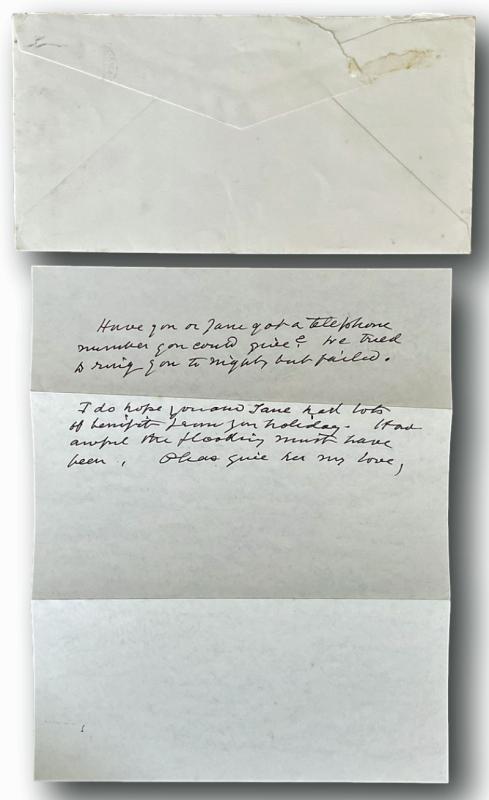 Have you or Jane got a telephone
number you could give? We tried
to ring you to night, but failed.
I do hope you and Jane had lots
of benifit from you holiday. How
awful the flooding must have
been. Pleas give her my love,